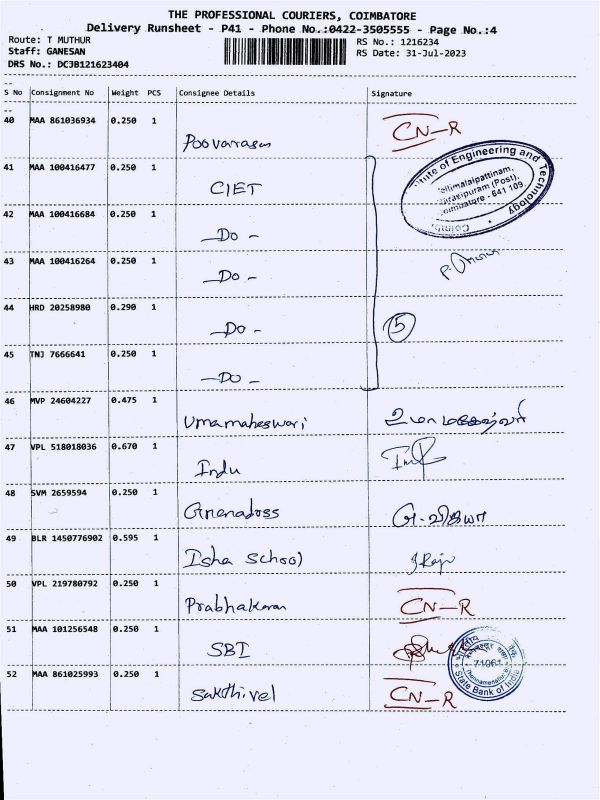 THE PROFESSIONAL COURIERS, COIMBATORE
Delivery Runsheet - P41 - Phone No.:0422-3505555 - Page No.:4
Route: T MUTHUR RS No.: 1216234
Staff: GANESAN RS Date: 31-Jul-2023
DRS No.: DCJB121623404
S No Consignment No Weight PCS Consignee Details Signature
40 MAA 861036934 0.250 1 Poovarasan CN-R
41 MAA 100416477 0.250 1 CIET
ute of Engineering and Technology
ellimalaipattinam,
arasipuram (Post),
oimbatore - 641 109.
Coimb
42 MAA 100416684 0.250 1 -Do-
43 MAA 100416264 0.250 1 -Do-
44 HRD 20258980 0.290 1 -Do- 5
45 TNJ 7666641 0.250 1 -Do-
46 MVP 24604227 0.475 1 Umamaheswari உமாமகேஷ்வரி
47 VPL 518018036 0.670 1 Indu
48 SVM 2659594 0.250 1 Gnanadoss
49 BLR 1450776902 0.595 1 Isha School
50 VPL 219780792 0.250 1 Prabhakaran CN-R
51 MAA 101256548 0.250 1 SBI
71061
State Bank of India
52 MAA 861025993 0.250 1 Sakthivel CN-R